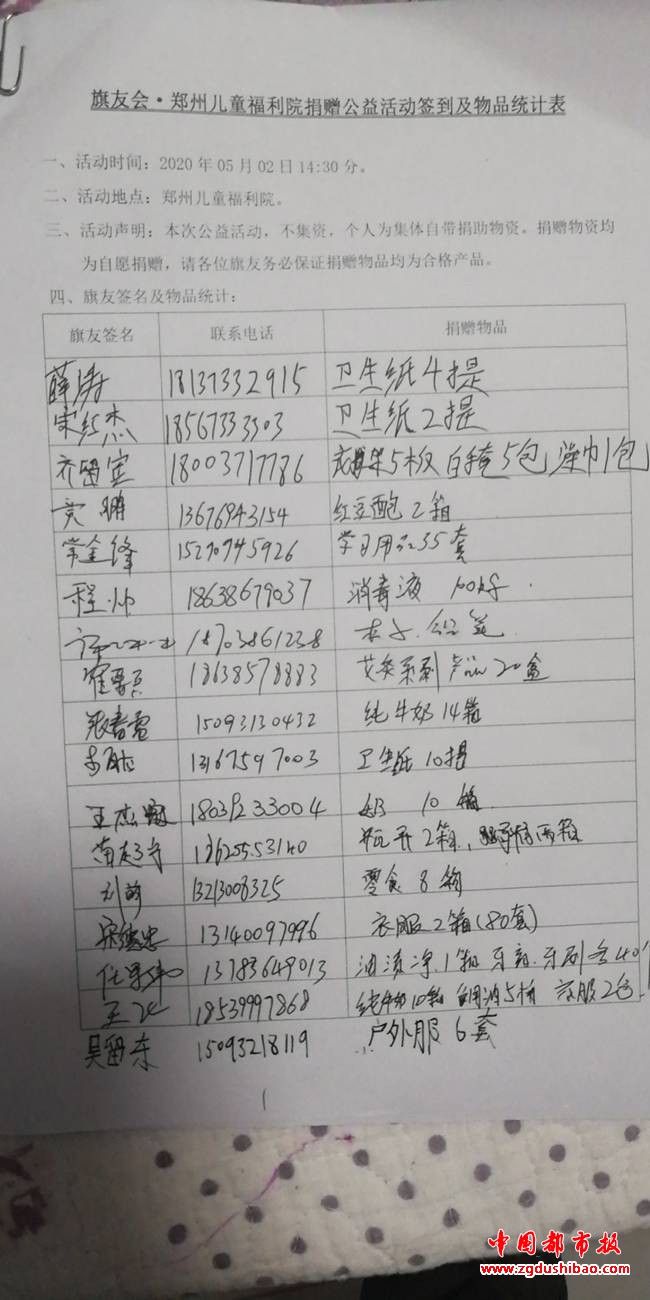 旗友会·郑州儿童福利院捐赠公益活动签到及物品统计表
一、活动时间：2020年05月02日14:30分。
二、活动地点：郑州儿童福利院。
三、活动声明：本次公益活动，不集资，个人为集体自带捐助物资。捐赠物资均
为自愿捐赠，请各位旗友务必保证捐赠物品均为合格产品。
四、旗友签名及物品统计：
旗友签名 联系电话 捐赠物品
薛涛 18137332915 卫生纸4提
宋红杰 18567333303 卫生纸2提
齐留宾 18003717786 5包 1包
黄鹏 13676943154 红豆 2箱
常金锋 15290745926 学习用品35套
程帅 18638679037 消毒液 100kg
18703861238
崔 18638578883 艾灸系列产品20盒
张春雷 15093130432 纯牛奶14箱
13167597003 卫生纸10提
王杰 18039233004 奶 10箱
2箱
刘 13213008325 零食8箱
宋德忠 13140097996 衣服2箱(80套)
任 13783649013 油渍净1箱 牙膏 牙刷各40
王 18539997868 纯牛奶10箱 5桶 衣服2包
吴留东 15093218119 户外服6套
1
中国都市报
www.zgdushibao.com